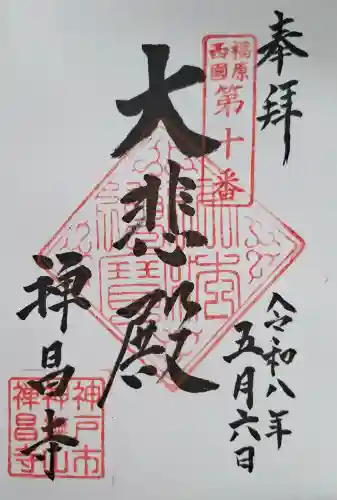 奉拝
福原
西國
第十番
大悲殿
令和八年
五月六日
禅昌寺
神戸市
神撫山
禅昌寺